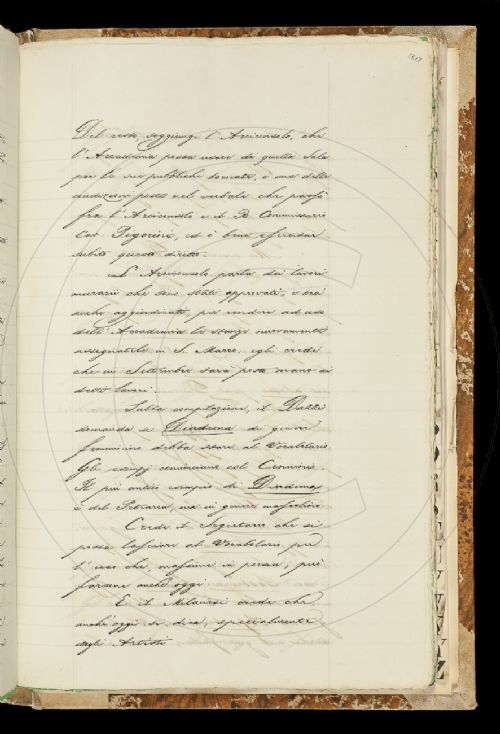 Del resto, soggiunge l'Arciconsolo, che
l'Accademia possa usare di quella Sala
per le sue pubbliche tornate, è una delle
condizioni poste nel verbale che passò
fra l'Arciconsolo e il R. Commissario
Cav. Pigorini, ed è bene esercitar
subito questo diritto.
L'Arciconsolo parla dei lavori
murarii che sono stati approvati, e ora
anche aggiudicati, per rendere ad uso
dell'Accademia le stanze nuovamente
assegnatele in S. Marco, egli crede
che in Settembre sarà posto mano ai
detti lavori.
Sulla compilazione, il Dazzi
domanda se Diadema di genere
femminino debba stare al Vocabolario.
Gli esempj cominciano col
Il più antico esempio di Diadema
è del Petrarca, ma in genere mascolino.
Crede il Segretario che si
possa lasciare al Vocabolario, per
l'uso che, massime in poesia, può
farsene anche oggi.
E il Milanesi crede che
anche oggi si dica, specialmente
dagli Artisti